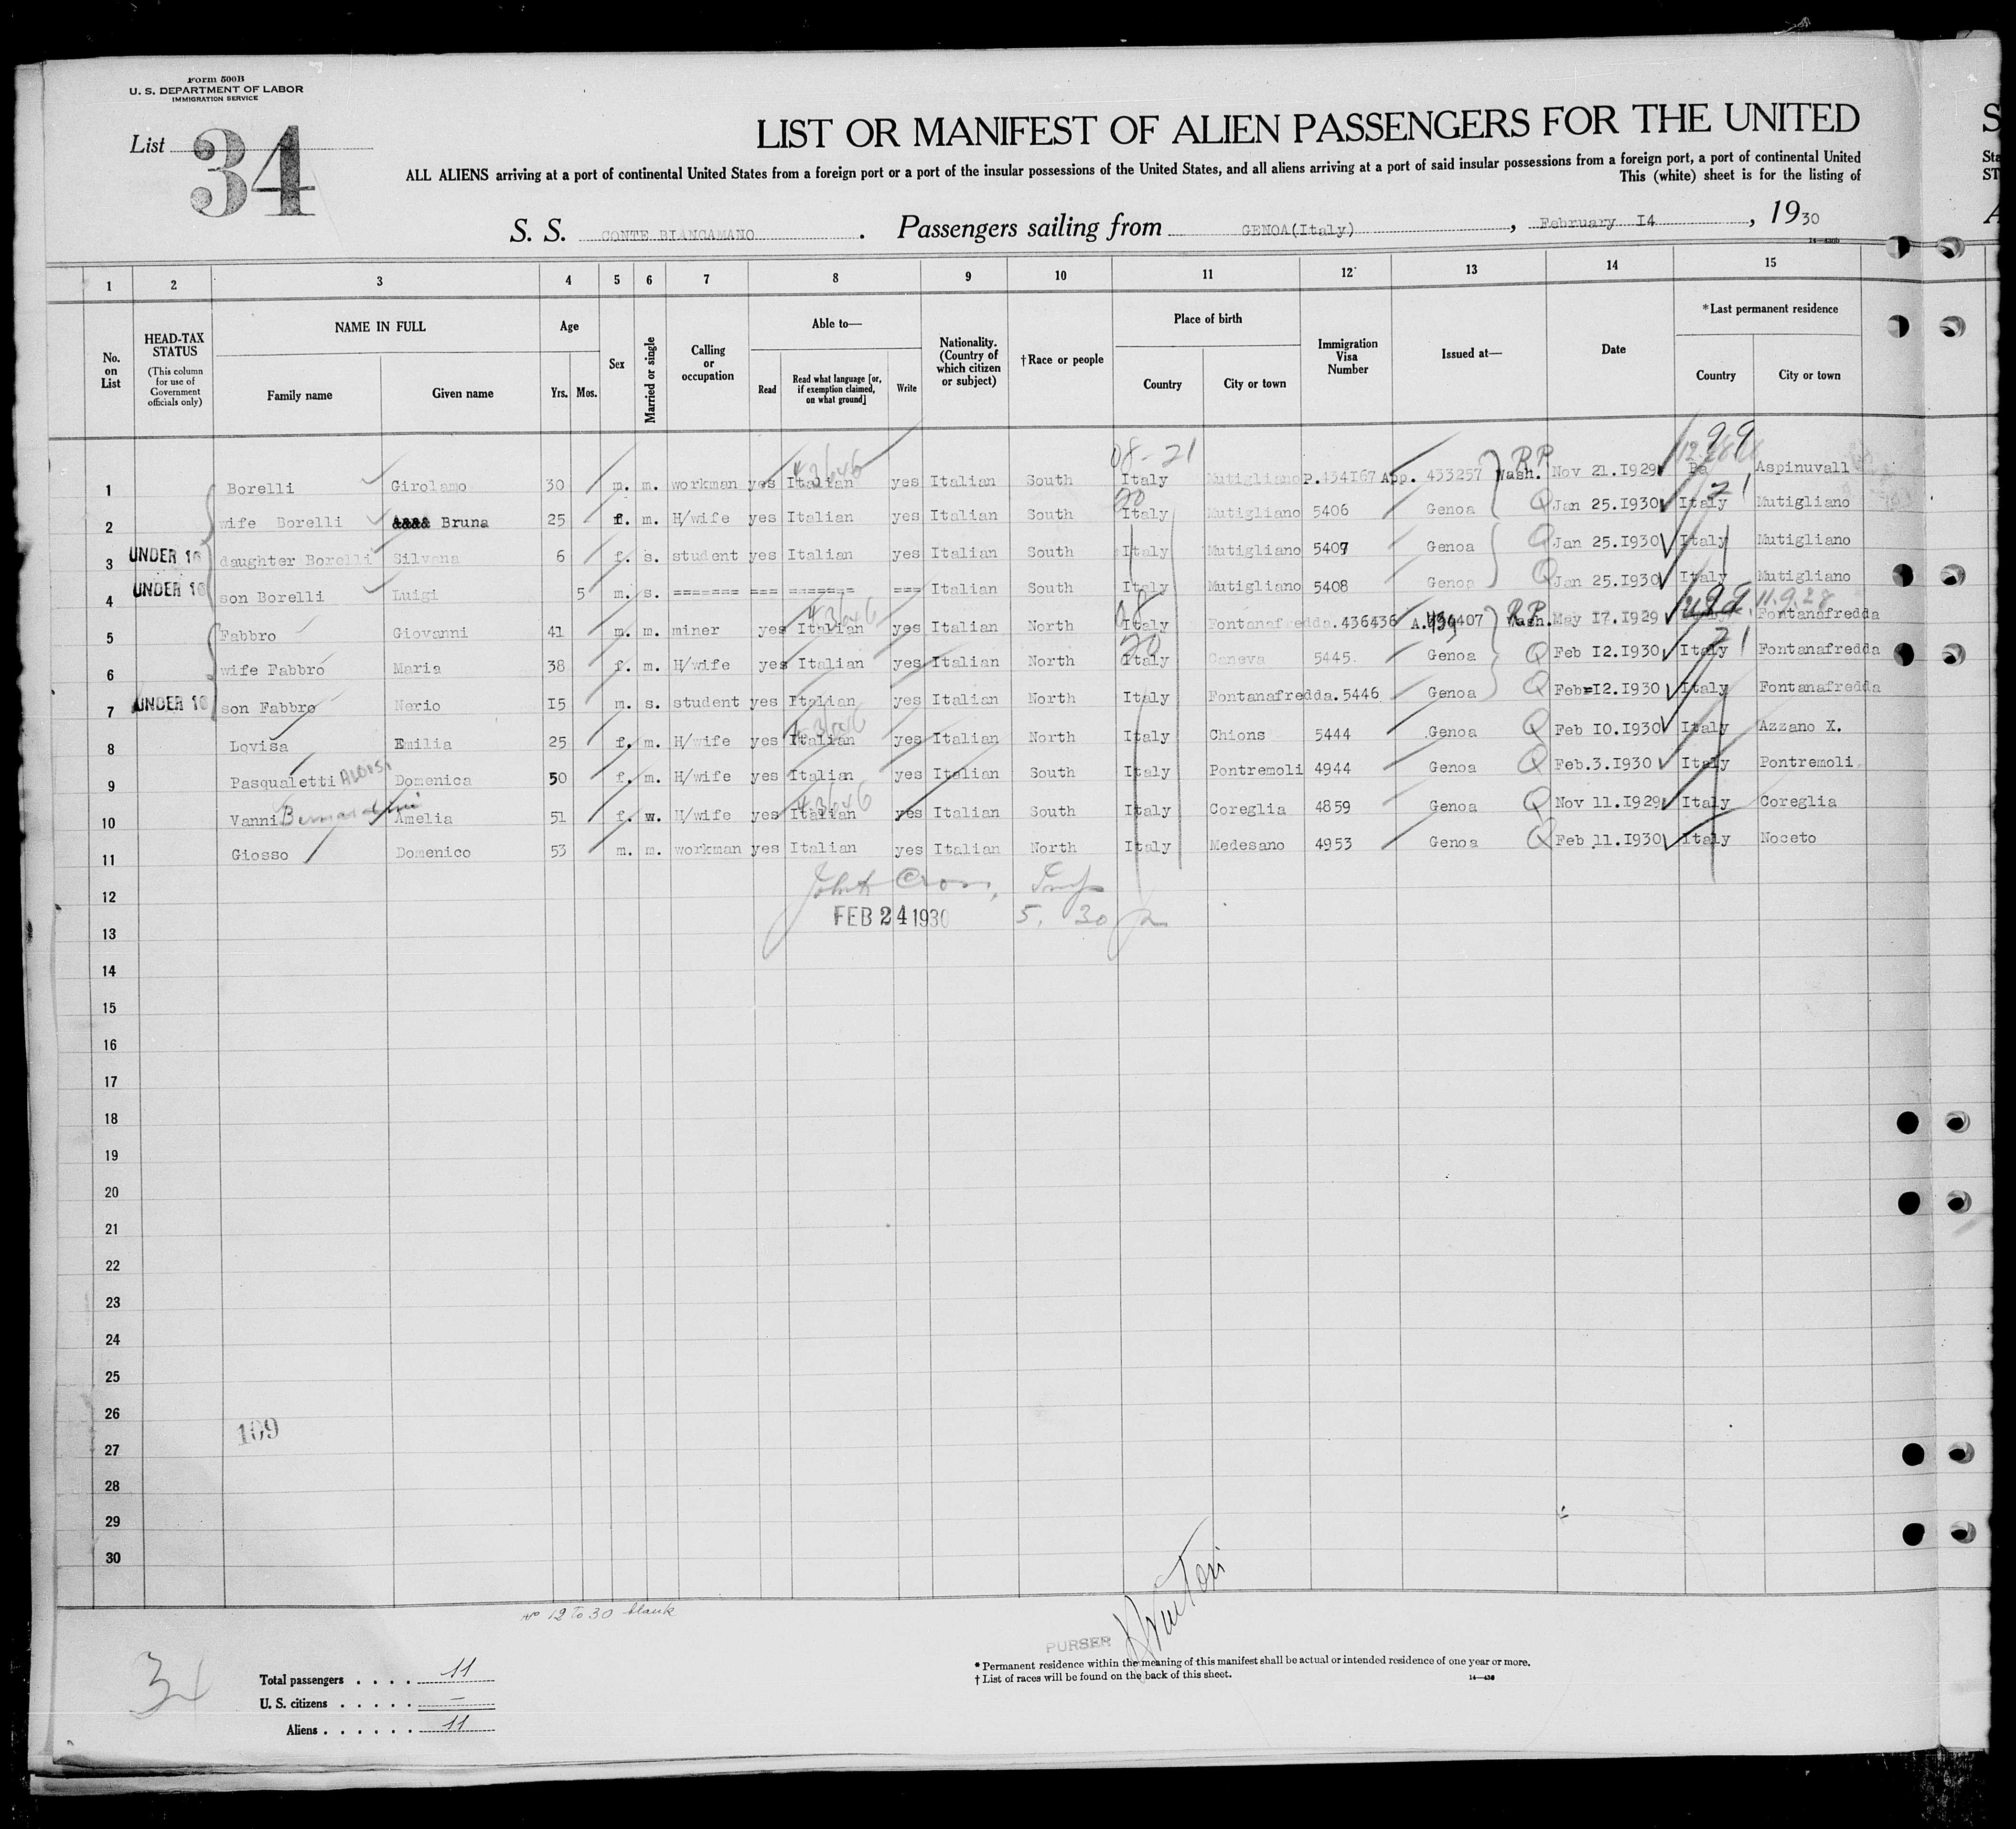 Form 500B
U. S. DEPARTMENT OF LABOR
IMMIGRATION SERVICE
List 34
LIST OR MANIFEST OF ALIEN PASSENGERS FOR THE UNITED S
ALL ALIENS arriving at a port of continental United States from a foreign port or a port of the insular possessions of the United States, and all aliens arriving at a port of said insular possessions from a foreign port, a port of continental United Sta
This (white) sheet is for the listing of ST
S. S. CONTE BIANCAMANO. Passengers sailing from GENOA(Italy), February I4, 1930
14—430b
1 2 3 4 5 6 7 8 9 10 11 12 13 14 15
No. on List
HEAD-TAX STATUS (This column for use of Government officials only)
NAME IN FULL Family name Given name
Age Yrs. Mos.
Sex
Married or single
Calling or occupation
Able to— Read Read what language [or, if exemption claimed, on what ground] Write
Nationality. (Country of which citizen or subject)
†Race or people
Place of birth Country City or town
Immigration Visa Number
Issued at—
Date
*Last permanent residence Country City or town
08-21 99
1 Borelli Girolamo 30 m. m. workman yes Italian 43646 yes Italian South Italy Mutigliano P.434I67 App. 433257 Wash. R.P. Nov 21.I929 Pa Aspinuvall
2 wife Borelli Bruna 25 f. m. H/wife yes Italian yes Italian South 20 Italy Mutigliano 5406 Genoa Q Jan 25.I930 Italy 21 Mutigliano
3 UNDER 16 daughter Borelli Silvana 6 f. s. student yes Italian yes Italian South Italy Mutigliano 5407 Genoa Q Jan 25.I930 Italy Mutigliano
4 UNDER 16 son Borelli Luigi 5 m. s. ======= === ======= === Italian South Italy Mutigliano 5408 Genoa Q Jan 25.I930 Italy Mutigliano
5 Fabbro Giovanni 41 m. m. miner yes Italian 43646 yes Italian North 08 Italy Fontanafredda.436436 Wash. R.P. May I7.I929 99 11.9.28 Fontanafredda
6 wife Fabbro Maria 38 f. m. H/wife yes Italian yes Italian North 20 Italy Caneva 5445. Genoa Q Feb I2.I930 Italy 21 Fontanafredda
7 UNDER 16 son Fabbro Nerio I5 m. s. student yes Italian yes Italian North Italy Fontanafredda.5446 Genoa Q Feb=I2.I930 Italy Fontanafredda
8 Lovisa Emilia 25 f. m. H/wife yes Italian 43646 yes Italian North Italy Chions 5444 Genoa Q Feb IO.I930 Italy Azzano X.
9 Pasqualetti ALOISI Domenica 50 f. m. H/wife yes Italian yes Italian South Italy Pontremoli 4944 Genoa Q Feb.3.I930 Italy Pontremoli
10 Vanni Bernardini Amelia 51 f. w. H/wife yes Italian 43646 yes Italian South Italy Coreglia 4859 Genoa Q Nov 11.I929 Italy Coreglia
11 Giosso Domenico 53 m. m. workman yes Italian yes Italian North Italy Medesano 4953 Genoa Q Feb 11.I930 Italy Noceto
12
FEB 24 1930 5. 30 p
13
14
15
16
17
18
19
20
21
22
23
24
25
26
109
27
28
29
30
No 12 to 30 blank
PURSER
34
Total passengers . . . . 11
U. S. citizens . . . . . —
Aliens . . . . . . 11
* Permanent residence within the meaning of this manifest shall be actual or intended residence of one year or more.
† List of races will be found on the back of this sheet.
14—430